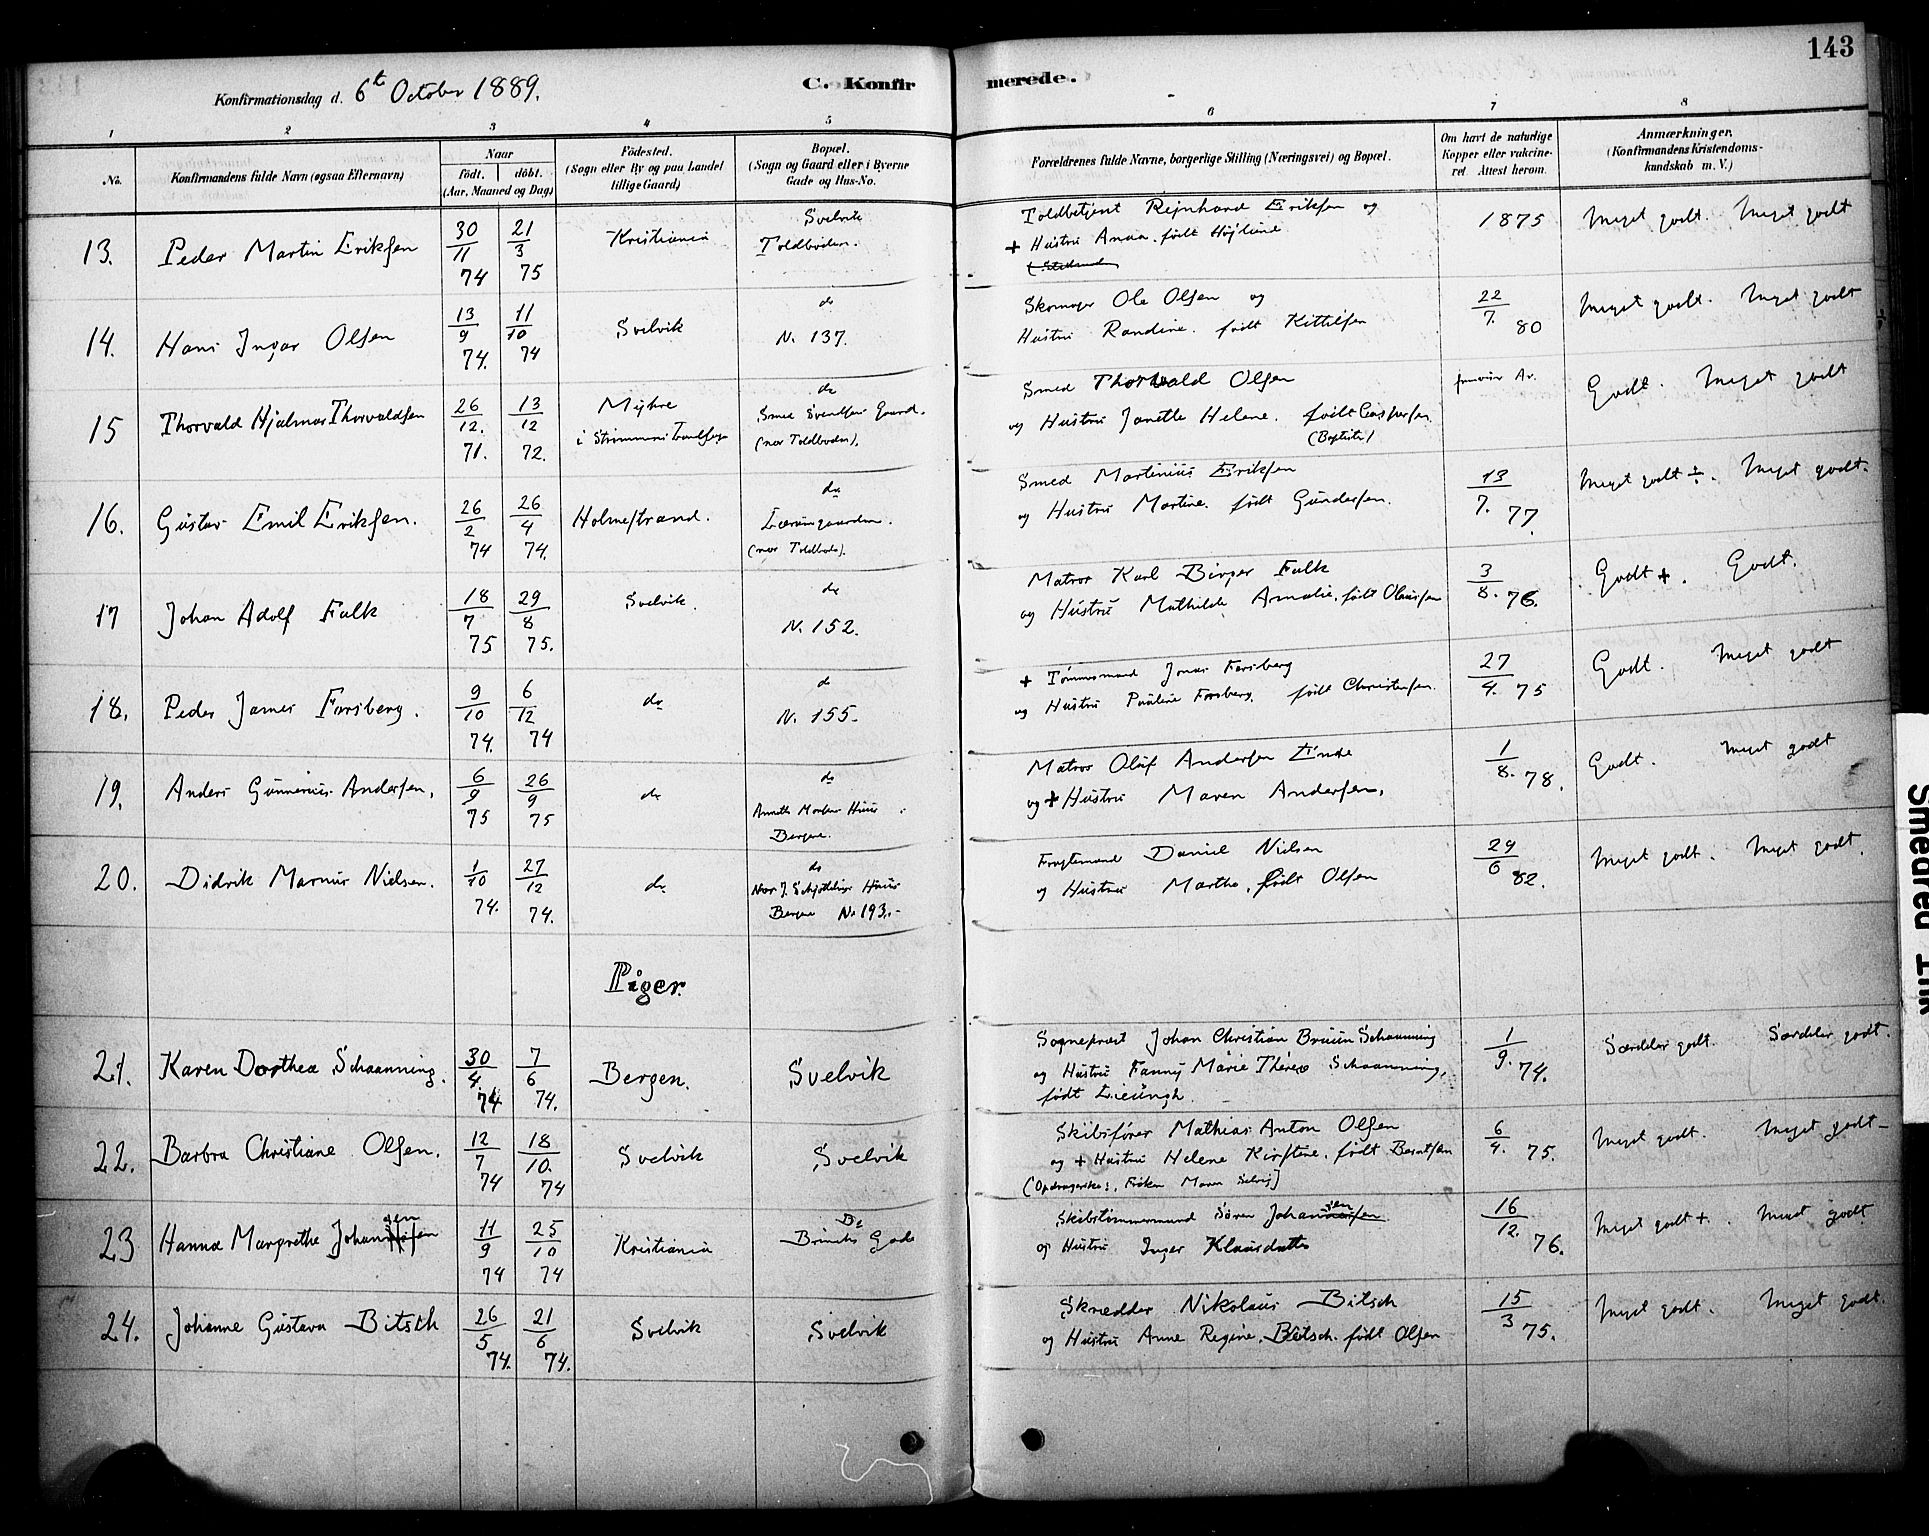 143
Konfirmationsdag d. 6t October 1889.
C. Konfirmerede.
1 2 3 4 5 6 7 8
No.
Konfirmandens fulde Navn (ogsaa Efternavn)
Naar
født. døbt.
(Aar, Maaned og Dag)
Fødested.
(Sogn eller By og paa Landet
tillige Gaard)
Bopæl.
(Sogn og Gaard eller i Byerne
Gade og Hus-No.
Forældrenes fulde Navne, borgerlige Stilling (Næringsvei) og Bopæl.
Om havt de naturlige
Kopper eller vakcine-
ret. Attest herom.
Anmærkninger.
(Konfirmandens Kristendoms-
kundskab m. V.)
13. Peder Martin Eriksen 30/11 74 21/3 75 Kristiania Svelvik
Toldboden.
Toldbetjent Rejnhard Eriksen og
+ Hustru Anna. født Højline
1875 Meget godt. Meget godt
14. Hans Ingar Olsen 13/9 74. 11/10 74 Svelvik do
N. 137.
Skomager Ole Olsen og
Hustru Randine. født Kittilsen
22/7. 80 Meget godt. Meget godt
15 Thorvald Hjalmar Thorvaldsen 26/12. 71. 13/12 72. Myhre
i Strømmens
do
Smed Svendsens Gaard.
(nær Toldboden).
Smed Thorvald Olsen
og Hustru Janette Helene. født Caspersen.
(Baptist)
Godt. Meget godt
16. Gustav Emil Eriksen. 26/2 74 26/4 74. Holmestrand. do
(nær Toldbod).
Smed Martinius Eriksen
og Hustru Martine. født Gundersen.
13/7. 77 Meget godt ÷. Meget godt.
17 Johan Adolf Falk 18/7 75 29/8 75. Svelvik. do
N. 152.
Matros Karl Birger Falk
og Hustru Mathilde Amalie, født Olausen
3/8. 76. Godt +. Godt.
18. Peder James Forsberg. 9/10 74. 6/12 74 do do
N. 155.
+ Tømmermand Jonas Forsberg
og Hustru Pauline Forsberg. født Christensen.
27/4. 75 Godt. Meget godt
19. Anders Gunnerius Andersen, 6/9 75 26/9 75 do do
Anneth Huus
Bergene.
Matros Oluf Andersen
og + Hustru Maren Andersen,
1/8. 78. Godt. Meget godt
20. Didrik Marnus Nielsen. 1/10 74. 27/12 74. do do
Nær J. Huus
Bergene No 193.-
Fragtemand Daniel Nielsen
og Hustru Marthe, født Olsen
29/6 82. Meget godt. Meget godt.
Piger.
21. Karen Dorthea Schaanning. 30/4. 74 7/6 74. Bergen. Svelvik
Sognepræst Johan Christian Bruun Schaanning
og Hustru Fanny Marie Thérèse Schaanning,
født Lieungh.
1/9. 74. Særdeles godt. Særdeles godt.
22. Barbra Christiane Olsen. 12/7 74 18/10. 74 Svelvik Svelvik
Skibsfører Mathias Anton Olsen
og + Hustru Helene Kirstine. født Berntsen
(Opdragerske: Frøken Maren Selvig)
6/4. 75. Meget godt. Meget godt-
23 Hanna Margrethe Johansen 11/9 74 25/10 74 Kristiania Gade
Skibstømmermand Søren Johansen
og Hustru Inger Klausdatter
16/12. 76. Meget godt +. Meget godt
24. Johanne Gustava Bitsch 26/5 74. 21/6 74. Svelvik Svelvik
Skrædder Nikolaus Bitsch
og Hustru Anne Regine. Bitsch. født Olsen
15/3 75. Meget godt. Meget godt.
Smeared Ink